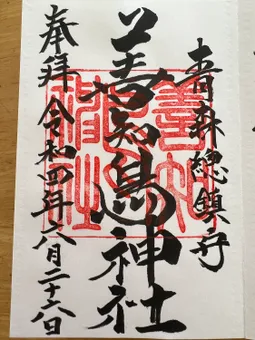 青森總鎮守
善知鳥神社
奉拝 令和四年六月二十六日